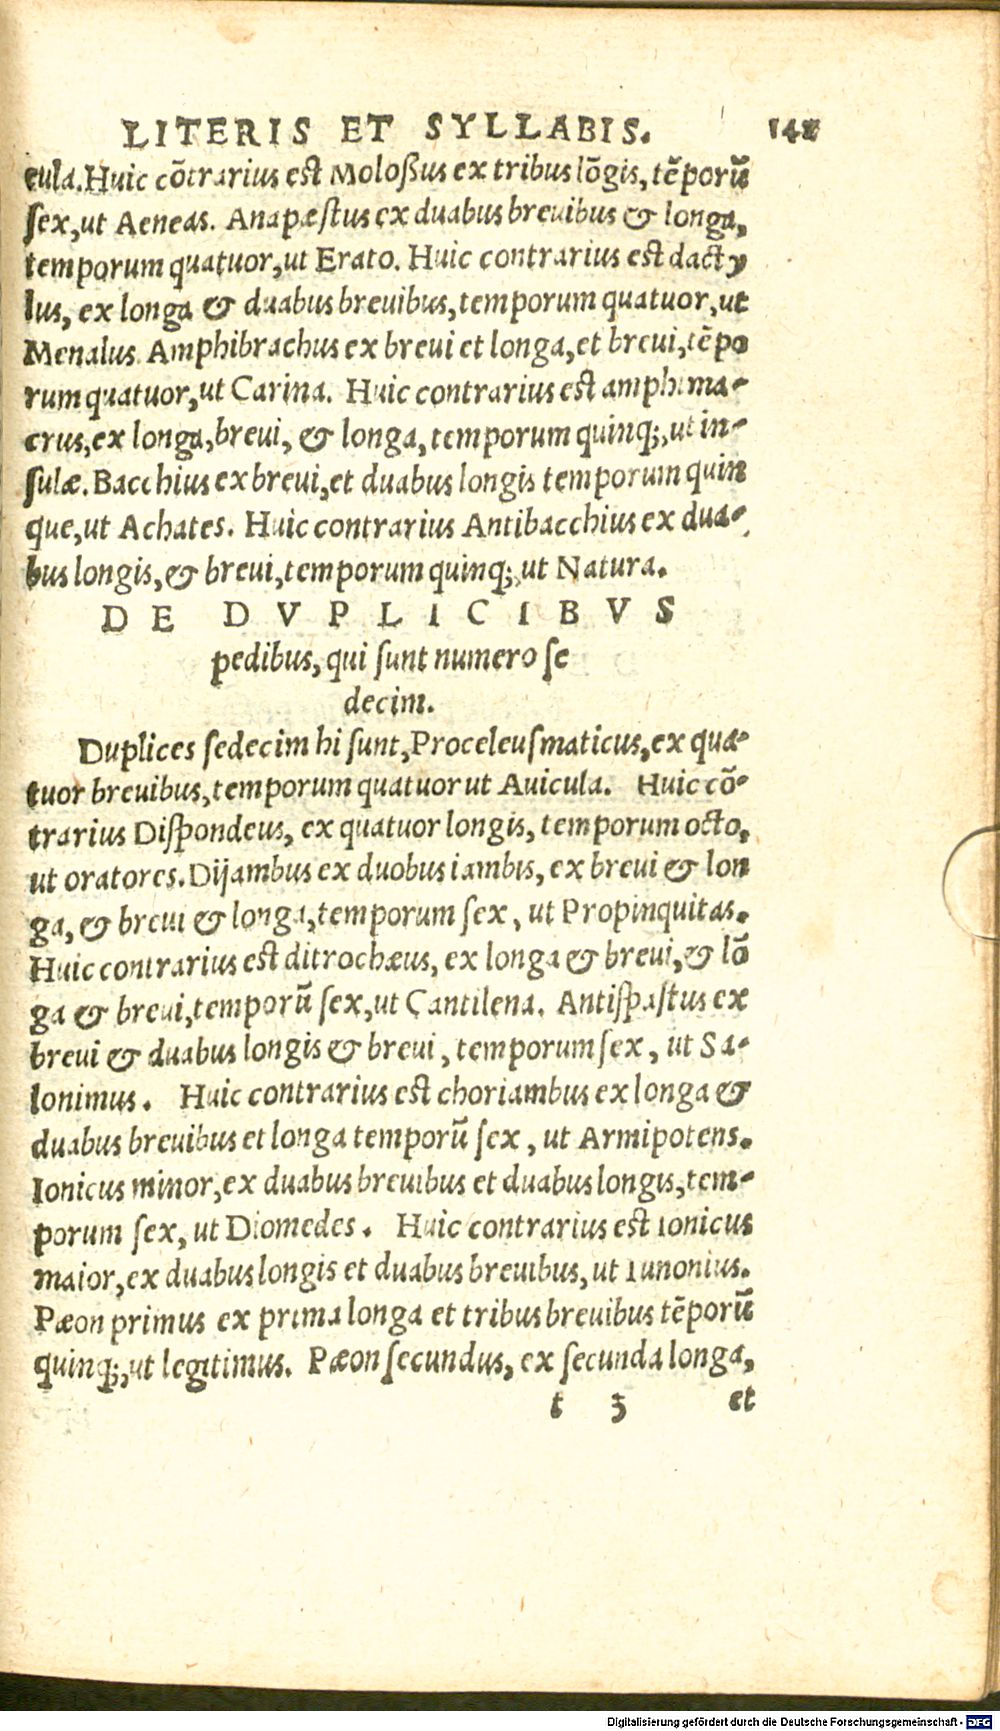 LITERIS ET SYLLABIS. 141
cula. Huic cõtrarius est Moloßus ex tribus lõgis, tẽporũ
ſex, ut Aeneas. Anapæſtus ex duabus breuibus & longa,
temporum quatuor, ut Erato. Huic contrarius est dacty
lus, ex longa & duabus breuibus, temporum quatuor, ut
Menalus. Amphibrachus ex breui et longa, et breui, tẽpo
rum quatuor, ut Carina. Huic contrarius est amphima-
crus, ex longa, breui, & longa, temporum quinq;, ut in-
ſulæ. Bacchius ex breui, et duabus longis temporum quin
que, ut Achates. Huic contrarius Antibacchius ex dua-
bus longis, & breui, temporum quinq;, ut Natura.
DE DVPLICIBVS
pedibus, qui ſunt numero ſe
decim.
Duplices ſedecim hi ſunt, Proceleuſmaticus, ex qua-
tuor breuibus, temporum quatuor ut Auicula. Huic cõ-
trarius Diſpondeus, ex quatuor longis, temporum octo,
ut oratores. Dijambus ex duobus iambis, ex breui & lon
ga, & breui & longa, temporum ſex, ut Propinquitas.
Huic contrarius est ditrochæus, ex longa & breui, & lõ
ga & breui, temporũ ſex, ut Cantilena. Antiſpaſtus ex
breui & duabus longis & breui, temporum ſex, ut Sa-
lonimus. Huic contrarius est choriambus ex longa &
duabus breuibus et longa temporũ ſex, ut Armipotens.
Ionicus minor, ex duabus breuibus et duabus longis, tem-
porum ſex, ut Diomedes. Huic contrarius est ionicus
maior, ex duabus longis et duabus breuibus, ut Iunonius.
Pæon primus ex prima longa et tribus breuibus tẽporũ
quinq;, ut legitimus. Pæon ſecundus, ex ſecunda longa,
t 3 et
Digitalisierung gefördert durch die Deutsche Forschungsgemeinschaft - DFG